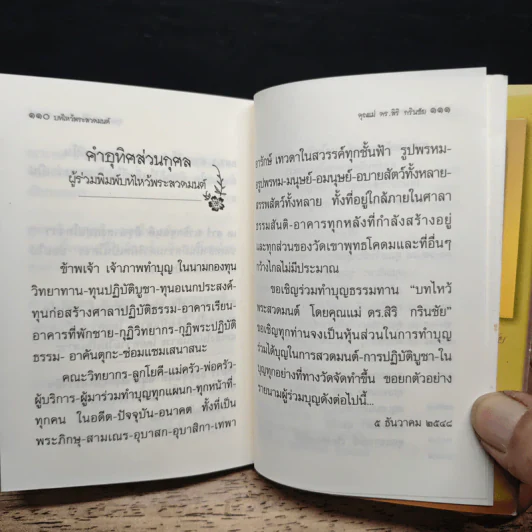 ๑๑๐ บทไหว้พระสวดมนต์
คำอุทิศส่วนกุศล
ผู้ร่วมพิมพ์บทไหว้พระสวดมนต์
ข้าพเจ้า เจ้าภาพทำบุญ ในนามกองทุน
วิทยาทาน-ทุนปฏิบัติบูชา-ทุนอเนกประสงค์-
ทุนก่อสร้างศาลาปฏิบัติธรรม-อาคารเรียน-
อาคารที่พักชาย-กุฏิวิทยากร-กุฏิพระปฏิบัติ
ธรรม- อาคันตุกะ-ซ่อมแซมเสนาสนะ
คณะวิทยากร-ลูกโยคี-แม่ครัว-พ่อครัว-
ผู้บริการ-ผู้มาร่วมทำบุญทุกแผนก-ทุกหน้าที่-
ทุกคน ในอดีต-ปัจจุบัน-อนาคต ทั้งที่เป็น
พระภิกษุ-สามเณร-อุบาสก-อุบาสิกา-เทพา
คุณแม่ ดร.สิริ กรินชัย ๑๑๑
รารักษ์ เทวดาในสวรรค์ทุกชั้นฟ้า รูปพรหม-
อรูปพรหม-มนุษย์-อมนุษย์-อบายสัตว์ทั้งหลาย-
สรรพสัตว์ทั้งหลาย ทั้งที่อยู่ใกล้ภายในศาลา
ธรรมสันติ-อาคารทุกหลังที่กำลังสร้างอยู่
และทุกส่วนของวัดเขาพุทธโคดมและที่อื่นๆ
กว้างไกลไม่มีประมาณ
ขอเชิญร่วมทำบุญธรรมทาน “บทไหว้
พระสวดมนต์ โดยคุณแม่ ดร.สิริ กรินชัย”
ขอเชิญทุกท่านจงเป็นหุ้นส่วนในการทำบุญ
ร่วมได้บุญในการสวดมนต์-การปฏิบัติบูชา-ใน
บุญทุกอย่างที่ทางวัดจัดทำขึ้น ขอยกตัวอย่าง
รายนามผู้ร่วมบุญดังต่อไปนี้...
๕ ธันวาคม ๒๕๔๘